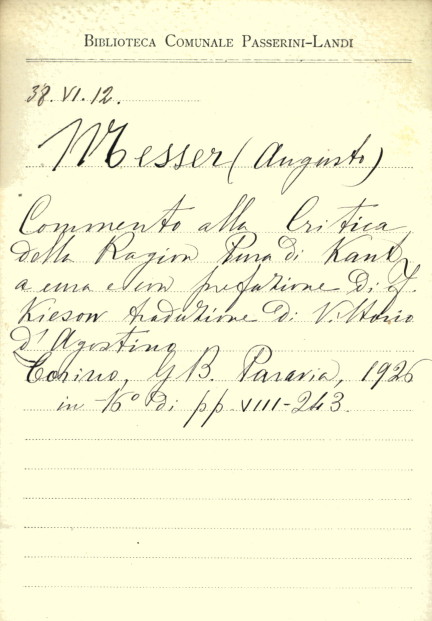 BIBLIOTECA COMUNALE PASSERINI-LANDI
38.VI.12.
Messer (Augusto)
Commento alla Critica
della Ragion Pura di Kant
a cura e con prefazione di F.
Kieson traduzione di Vittorio
d'Agostino
Torino, G B. Paravia, 1926
in 16° di pp VIII-243.